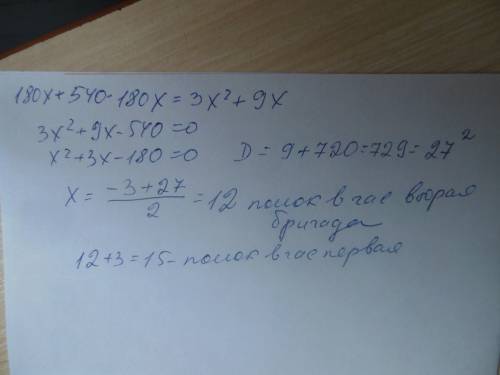 180x + 540 - 180x = 3x² + 9x
3x² + 9x - 540 = 0
x² + 3x - 180 = 0 D = 9 + 720 = 729 = 27²
x = (-3 + 27)/2 = 12 полок в час вторая
бригада
12 + 3 = 15 - полок в час первая